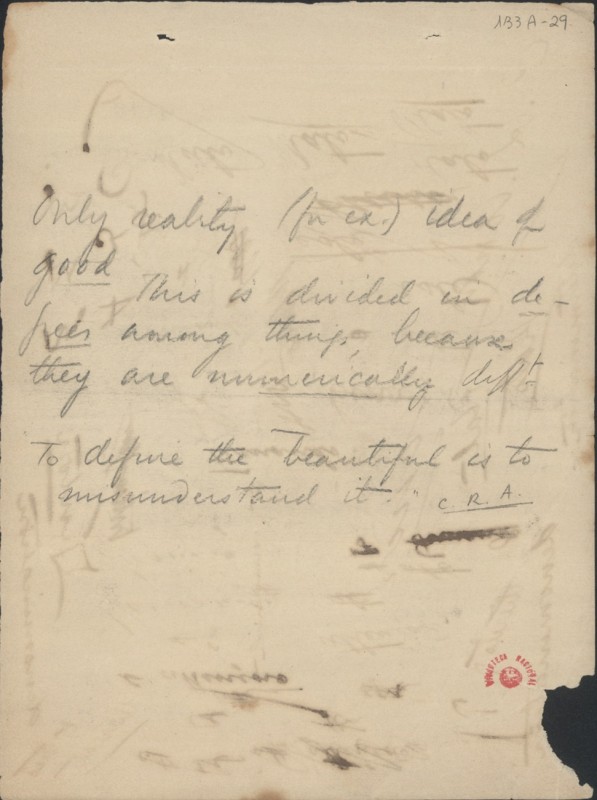 133A-29
Only reality (for ex.) idea of
good
This is divided in de-
grees among things because
they are numerically diff^t
To define the beautiful is to
misunderstand it." C. R. A.
BIBLIOTECA NACIONAL